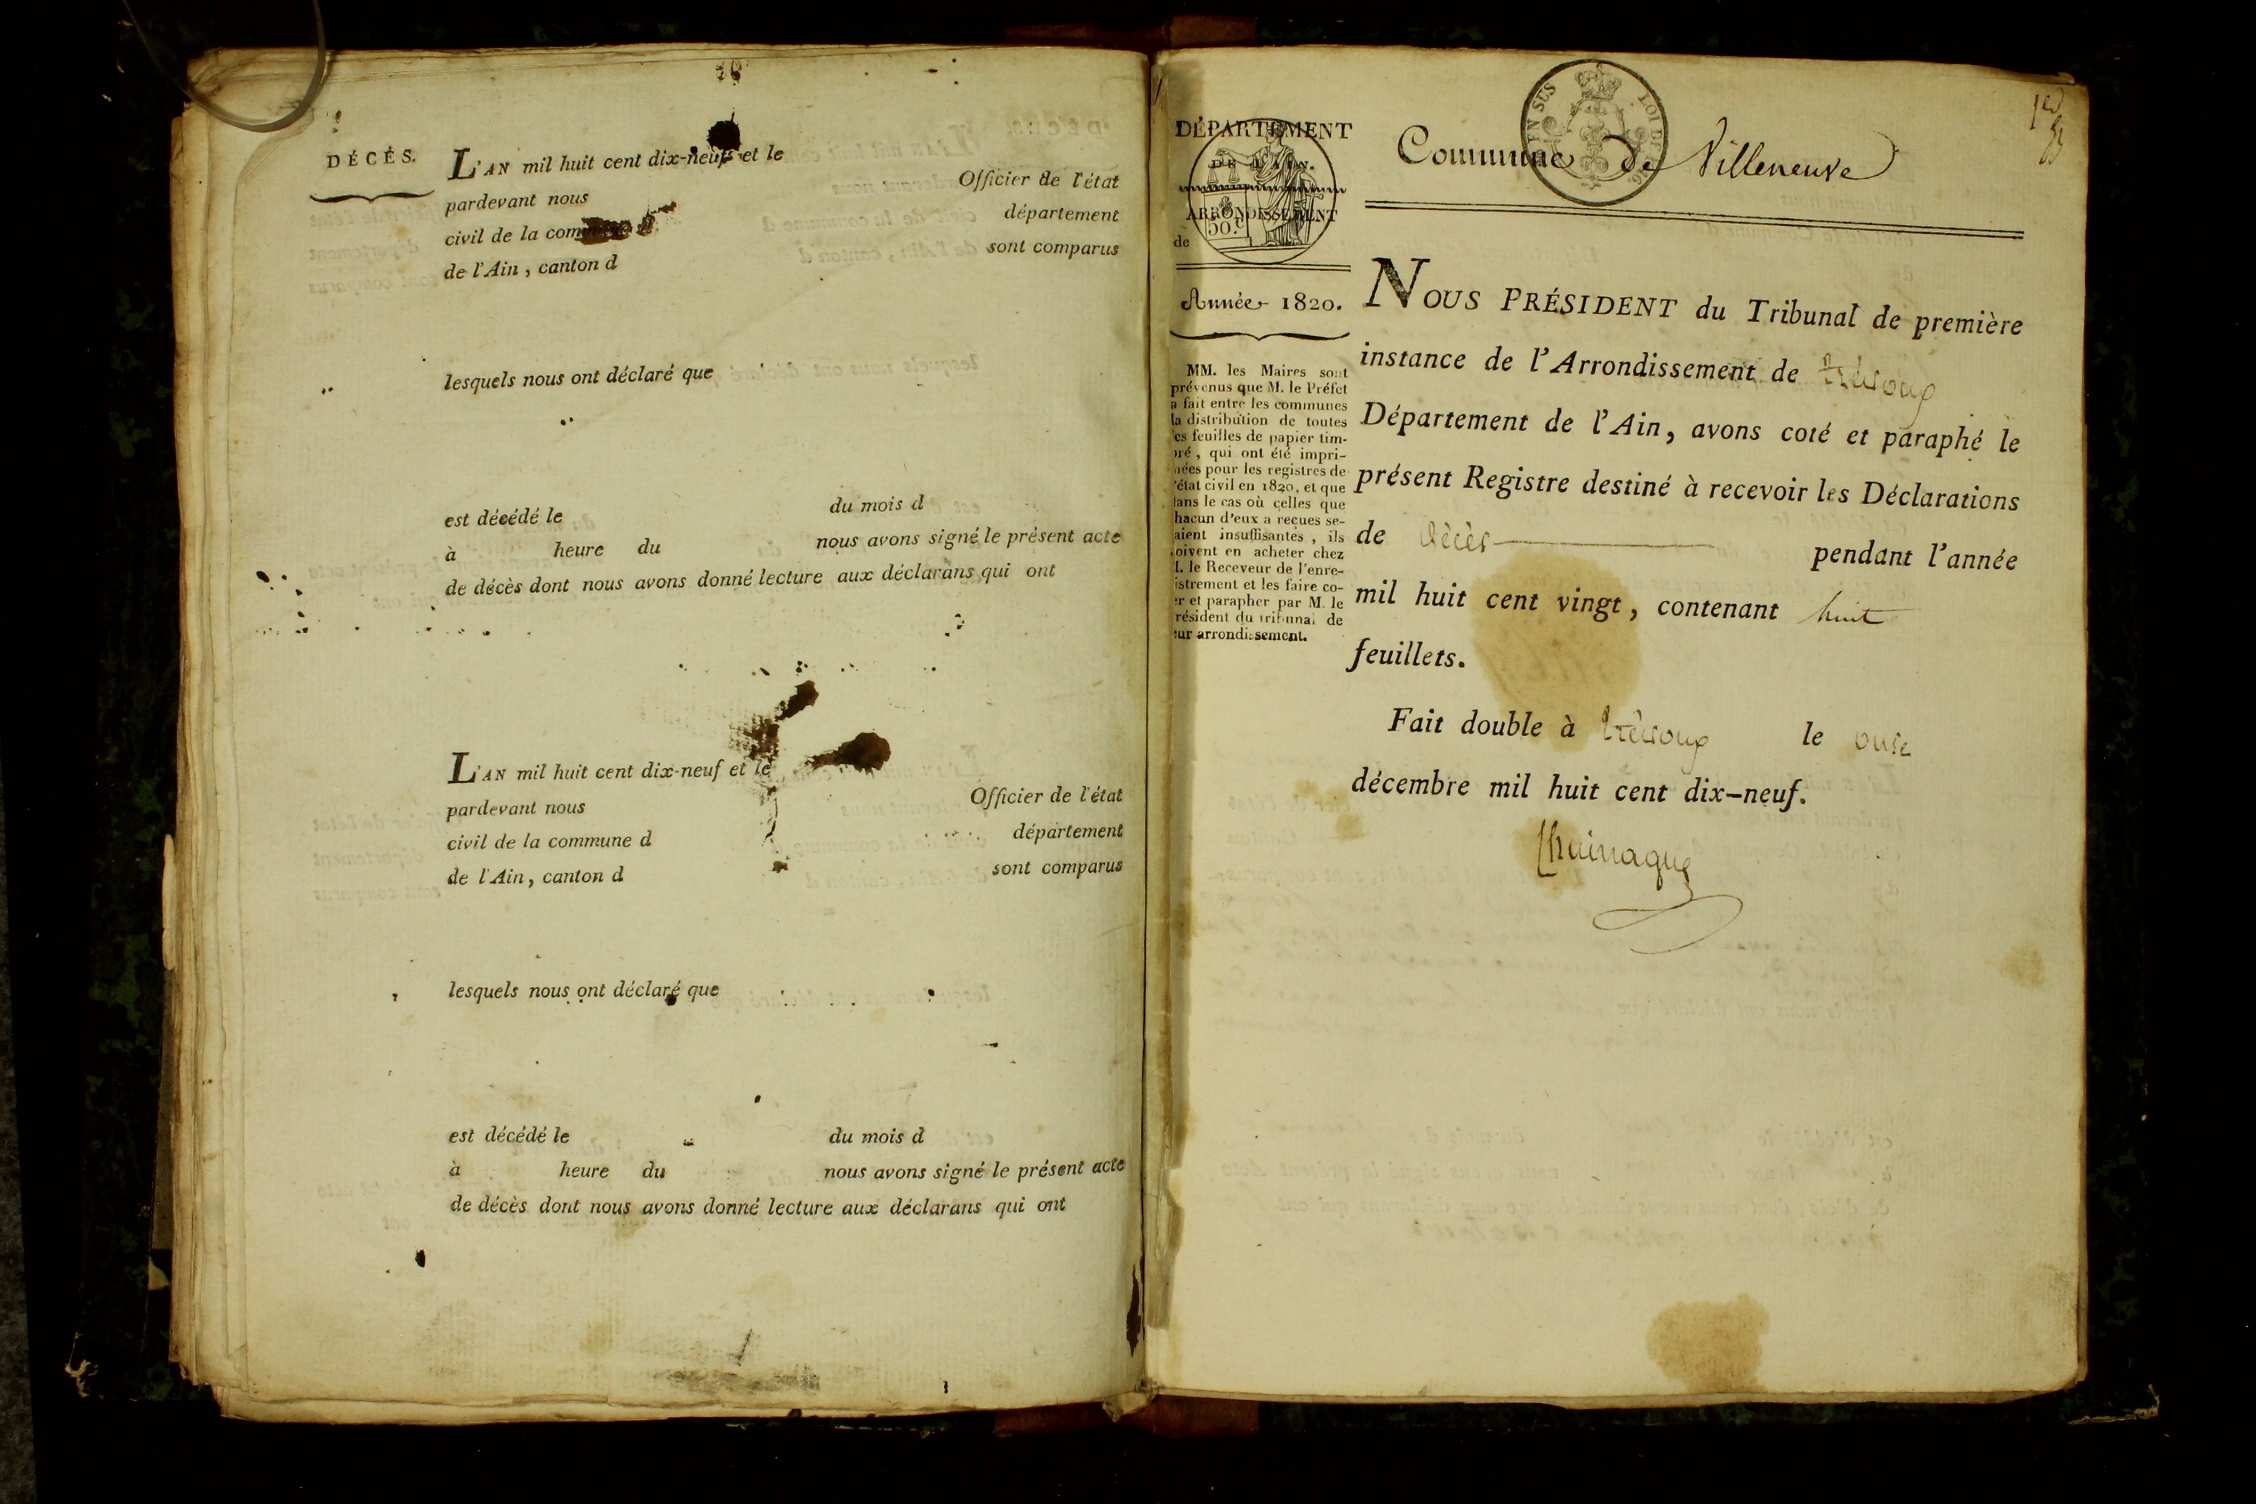 DÉCÉS.
L'AN mil huit cent dix-neuf et le
pardevant nous Officier de l'état
civil de la commune d département
de l'Ain, canton d sont comparus
lesquels nous ont déclaré que
est décédé le du mois d
à heure du nous avons signé le présent acte
de décès dont nous avons donné lecture aux déclarans qui ont
L'AN mil huit cent dix-neuf et le
pardevant nous Officier de l'état
civil de la commune d département
de l'Ain, canton d sont comparus
lesquels nous ont déclaré que
est décédé le du mois d
à heure du nous avons signé le présent acte
de décès dont nous avons donné lecture aux déclarans qui ont
DÉPARTEMENT
DE L'AIN.
ARRONDISSEMENT
de
50.c
Année 1820.
MM. les Maires sont
prévenus que M. le Préfet
a fait entre les communes
la distribution de toutes
les feuilles de papier tim-
bré, qui ont été impri-
mées pour les registres de
l'état civil en 1820, et que
dans le cas où celles que
chacun d'eux a reçues se-
raient insuffisantes, ils
doivent en acheter chez
M. le Receveur de l'enre-
gistrement et les faire co-
ter et parapher par M. le
Président du tribunal de
leur arrondissement.
1er
Commune de Villeneuve
NOUS PRÉSIDENT du Tribunal de première
instance de l'Arrondissement de trévoux
Département de l'Ain, avons coté et paraphé le
présent Registre destiné à recevoir les Déclarations
de décès pendant l'année
mil huit cent vingt, contenant huit
feuillets.
Fait double à trévoux le onze
décembre mil huit cent dix-neuf.